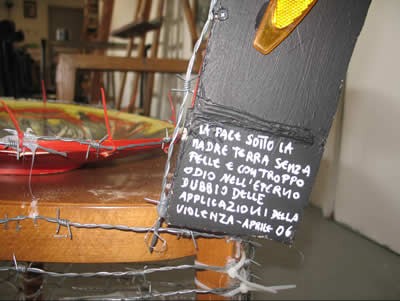 LA PACE SOTTO LA
MADRE TERRA SENZA
PELLE E CON TROPPO
ODIO NELL'ETERNO
DUBBIO DELLE
APPLICAZIONI DELLA
VIOLENZA-APRILE-06